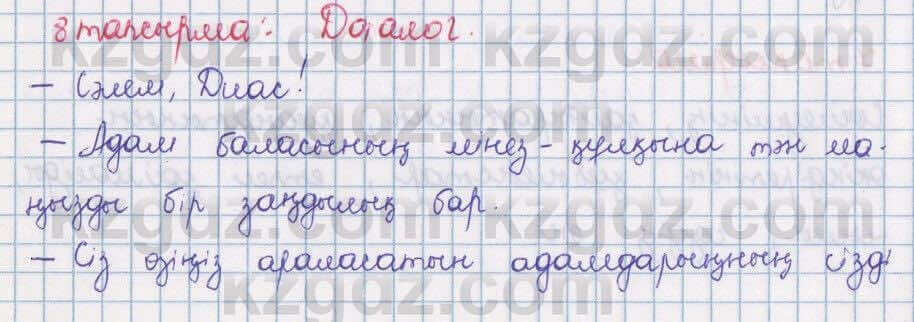 8 тапсырма: Диалог.
– Сәлем, Диас!
– Адам баласының мінез-құлқына тән ма-
ңызды бір заңдылық бар.
– Сіз өзіңіз араласатын адамдарыңның сізді
kzgaz.com
kzgaz.com
kzgaz.com